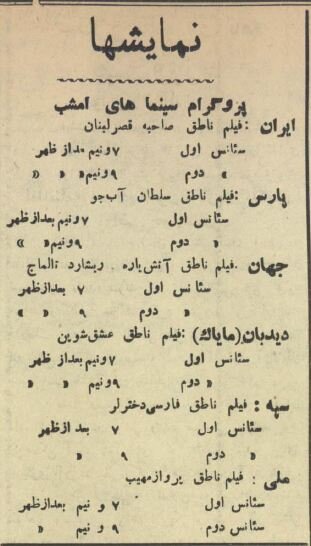 نمایشها
پروگرام سینما های امشب
ایران : فیلم ناطق صاحبه قصر لبنان
سئانس اول ۷ و نیم بعداز ظهر
» دوم ۹ و نیم » » »
پارس : فیلم ناطق سلطان آب جو
سئانس اول ۷ و نیم بعداز ظهر
» دوم ۹ و نیم » »
جهان . فیلم ناطق آتش پاره . ریشارد تالماج
سئانس اول ۷ بعداز ظهر
» دوم ۹ » »
دیدبان (مایاک) : فیلم ناطق عشق شوپن
سئانس اول ۷ و نیم بعداز ظهر
» دوم ۹ و نیم » »
سپه : فیلم ناطق فارسی دختر لر
سئانس اول ۷ بعد از ظهر
» دوم ۹ » »
ملی : فیلم ناطق پرواز مهیب
سئانس اول ۷ و نیم بعداز ظهر
سئانس دوم ۹ و نیم »